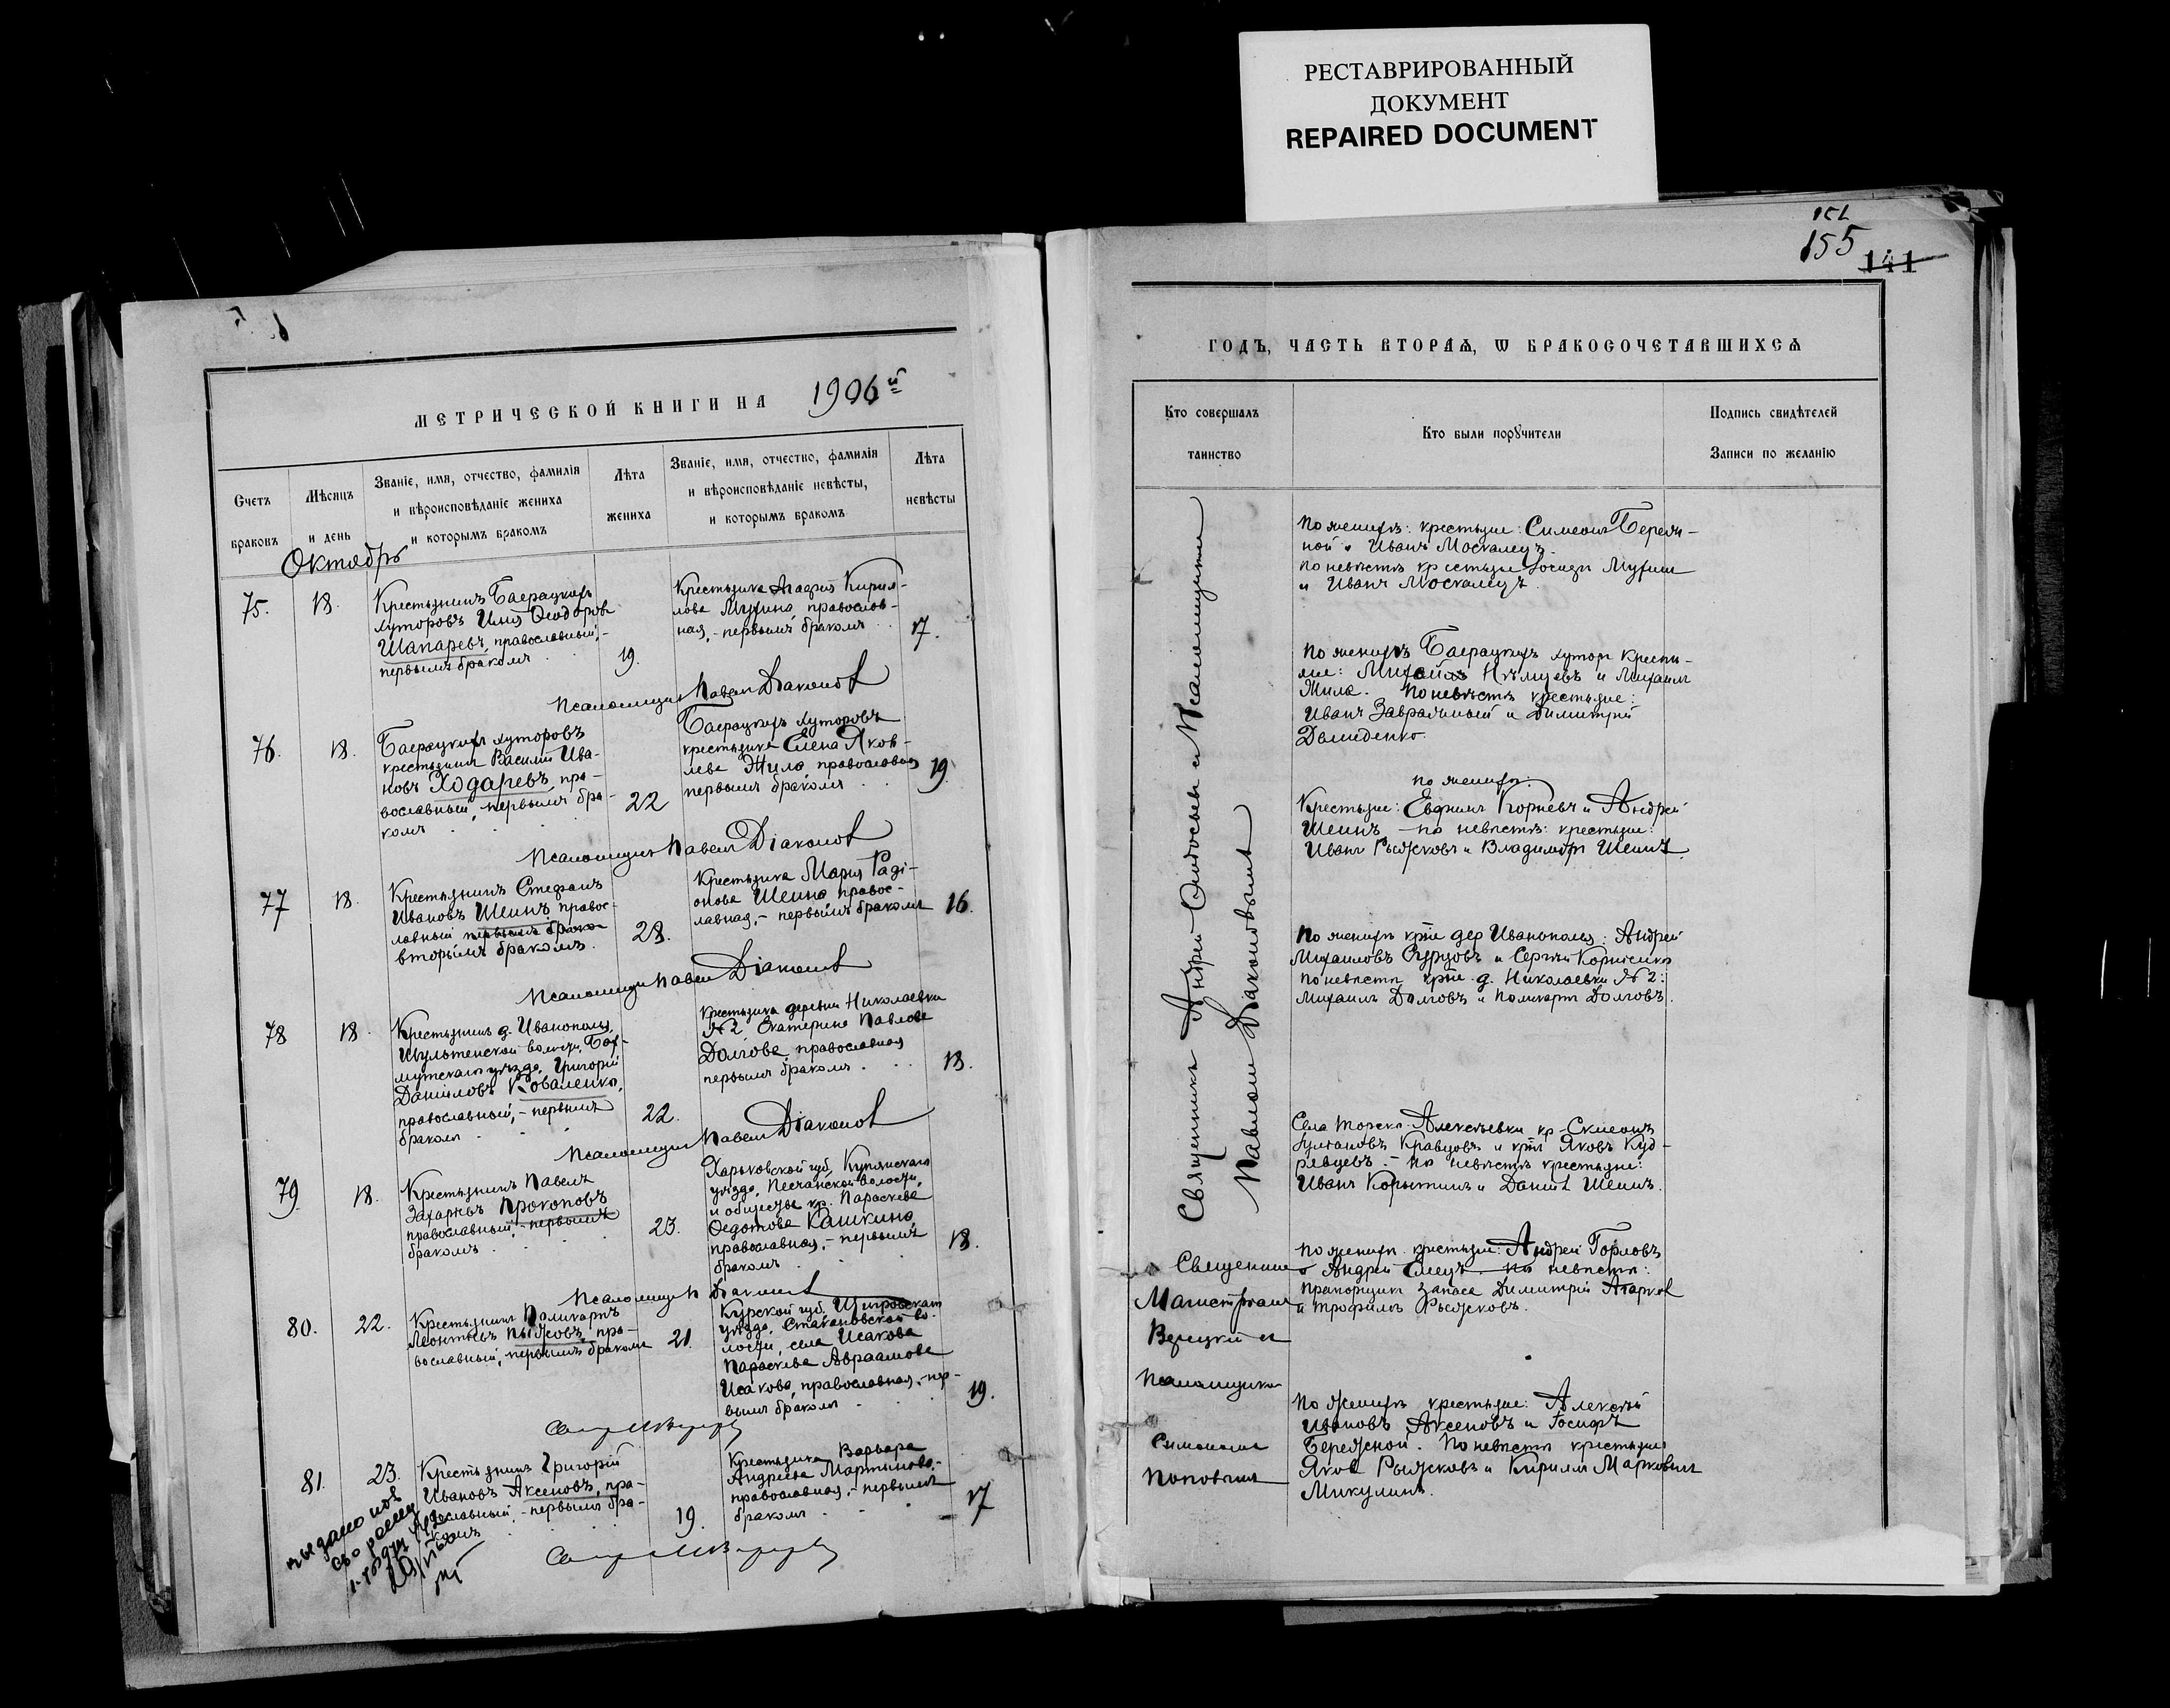 РЕСТАВРИРОВАННЫЙ
ДОКУМЕНТ
REPAIRED DOCUMENT
155
141
МЕТРИЧЕСКОЙ КНИГИ НА 1906й
Счетъ
браковъ
Мѣсяцъ
и день
Званіе, имя, отчество, фамилія
и вѣроисповѣданіе жениха
и которымъ бракомъ
Лѣта
жениха
Званіе, имя, отчество, фамилія
и вѣроисповѣданіе невѣсты,
и которымъ бракомъ
Лѣта
невѣсты
Октябрь
75.
18.
Крестьянинъ
хуторовъ Илія Ѳеодоровъ
Шапаревъ, православный,-
первымъ бракомъ
19.
Крестьянка Агафія Кирил-
лова Мухина православ-
ная,- первымъ бракомъ
17.
Псаломщикъ Павелъ Діаконовъ
76.
18.
хуторовъ
крестьянинъ Василій Ива-
новъ Ходаревъ, пра-
вославный, первымъ бра-
комъ
22
хуторовъ
крестьянка Елена Яков-
лева Жила православная
первымъ бракомъ
19.
Псаломщикъ Павелъ Діаконовъ
77
18.
Крестьянинъ Стефанъ
Ивановъ Шеинъ, правос-
лавный первымъ брако
вторымъ бракомъ.
28.
Крестьянка Марія Раді-
онова Шеина, правос-
лавная,- первымъ бракомъ
16.
Псаломщикъ Павелъ Діаконовъ
78
18.
Крестьянинъ д. Иванополья
волости, Бах-
мутскаго уѣзда, Григорій
Даниловъ Коваленко,
православный,- первымъ
бракомъ
22.
Крестьянка деревни Николаевки
№2 Екатерина Павлова
Долгова, православная
первымъ бракомъ.
18.
Псаломщикъ Павелъ Діаконовъ
79.
18.
Крестьянинъ Павелъ
Захарьевъ Прокоповъ
православный,- первымъ
бракомъ
23.
Харьковской губ. Купянскаго
уѣзда, Песчанской волости,
и общества кр. Параскева
Ѳедотова Кашкина,
православная,- первымъ
бракомъ
18.
Псаломщикъ П. Діаконовъ
80.
22.
Крестьянинъ Поликарпъ
Леонтьевъ, пра-
вославный, первымъ бракомъ
21.
Курской губ. Щигровскаго
уѣзда, Стакановской во-
лости, села Исакова
Параскева Авраамова
Исакова, православная,- пер-
вымъ бракомъ
19.
81.
23.
Крестьянинъ Григорій
Ивановъ Аксеновъ, пра-
вославный,- первымъ бра-
комъ
19.
Крестьянка Варвара
Андреева Мартынова,-
православная,- первымъ
бракомъ
17
ГОДЪ, ЧАСТЬ ВТОРАѦ, Ѡ БРАКОСОЧЕТАВШИХСѦ
Кто совершалъ
таинство
Кто были порꙋчители
Подпись свидѣтелей
Записи по желанію
Священникъ Андрей и Псаломщикъ
Павломъ Діаконовымъ
По женихѣ: крестьяне: Симеонъ Береж-
ной и Иванъ Москалецъ.
по невѣстѣ крестьяне Іосифъ Мухинъ
и Иванъ Москалецъ.
По женихѣ хутор. кресть-
яне: Михаилъ Нѣмцевъ и Михаилъ
Жила. По невѣстѣ крестьяне:
Иванъ и Димитрій
по женихѣ:
Крестьяне: Евфимъ Корневъ и Андрей
Шеинъ - по невѣстѣ: крестьяне:
Иванъ Рыжковъ и Владиміръ Шеинъ.
По женихѣ кр-не дер. Иванополья: Андрей
Михайловъ и Сергѣй Корніенко
по невѣстѣ кр-не д. Николаевки №2:
Михаилъ Долговъ и Поликарпъ Долговъ.
Села Торско-Алексѣевки кр. Симеонъ
Кравцовъ и кр-нъ Яковъ Куд-
рявцевъ.- По невѣстѣ крестьяне:
Иванъ Корытинъ и Даніилъ Шеинъ.
Священникъ
Магистріанъ
Верецкій и
Псаломщикъ
Симеонъ
Поповъ
По женихѣ крестьяне: Андрей Горловъ
и Андрей Елецъ по невѣстѣ:
прапорщикъ запаса Димитрій Агарковъ
и Трофимъ Рыжковъ.
По женихѣ крестьяне: Алексѣй
Ивановъ Аксеновъ и Іосифъ
Бережной. По невѣстѣ крестьяне
Яковъ Рыжковъ и Кириллъ Марковичъ
Микулинъ.